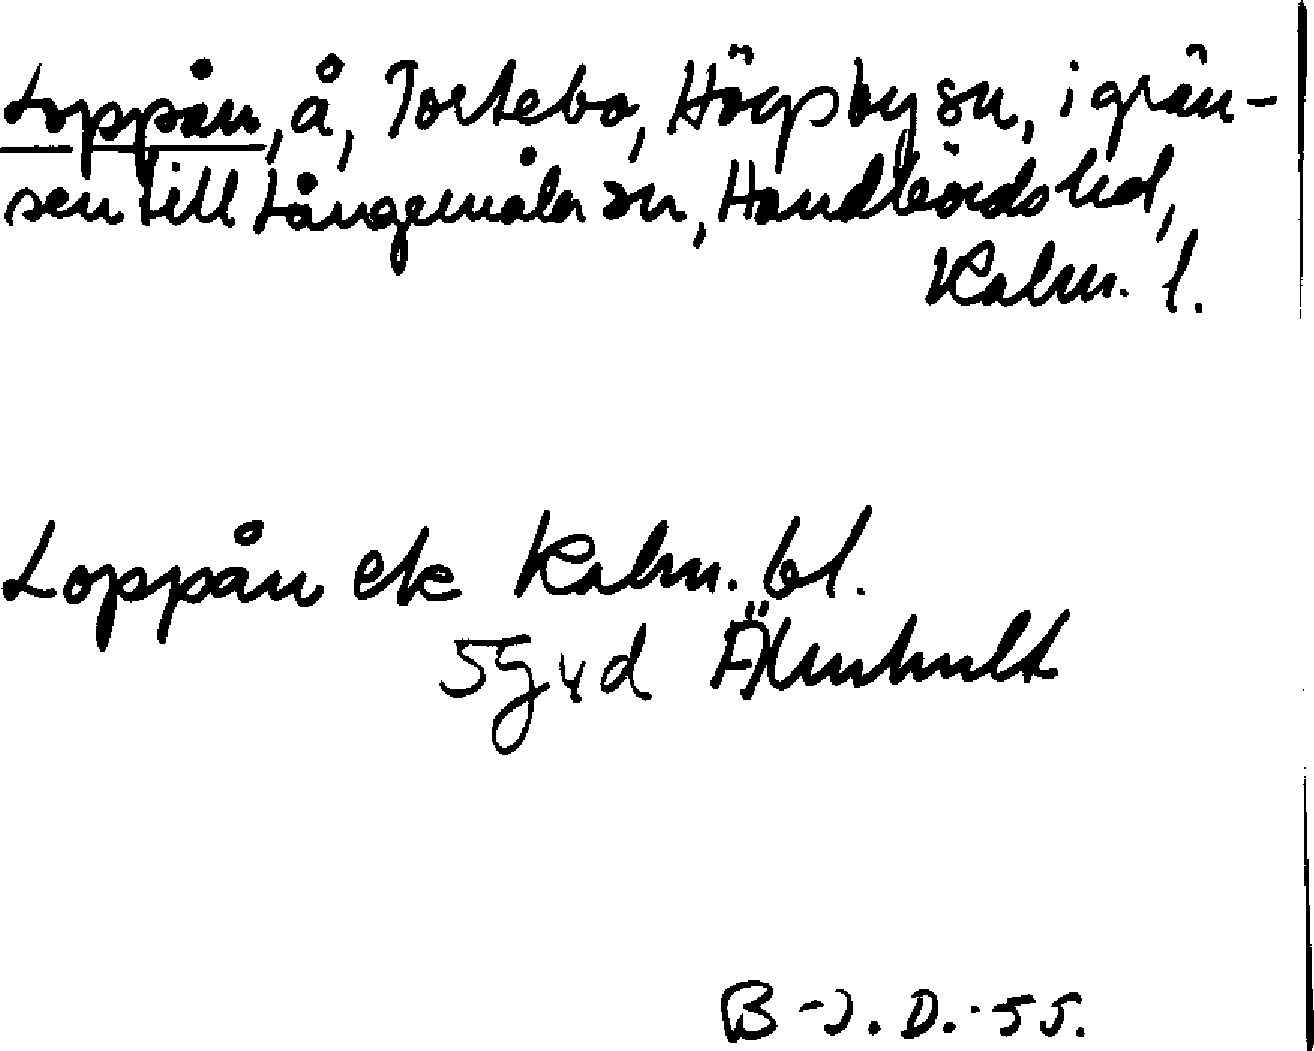 Loppån, å, Tortebo, Högsby sn, i grän-
sen till Långemåla sn, Handbörds hd,
Kalm. l.
Loppån ek Kalm. bl.
5G d Älmhult
B-J. D. -55.